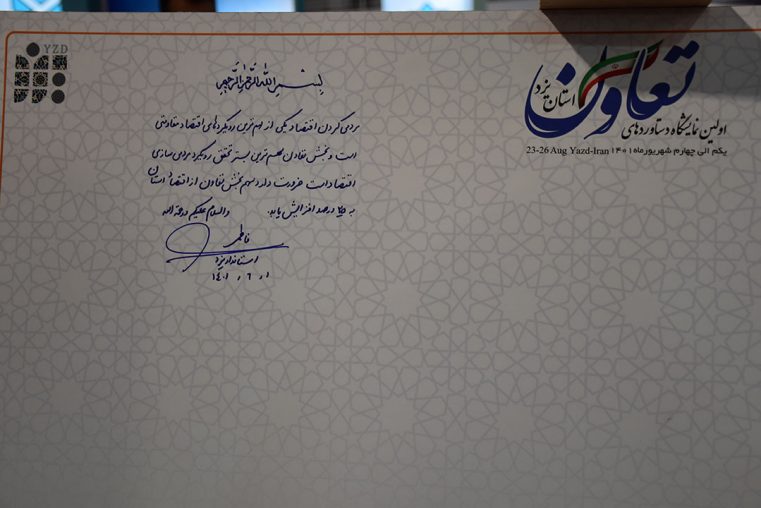 YZD
تعاون
استان یزد
اولین نمایشگاه دستاوردهای
یکم الی چهارم شهریورماه ۱۴۰۱ 23-26 Aug Yazd-Iran
بسم الله الرحمن الرحیم
مردمی کردن اقتصاد یکی از مهم‌ترین رویکردهای اقتصاد مقاومتی
است و بخش تعاون مهم‌ترین بستر تحقق رویکرد مردمی سازی
اقتصاد است ضرورت دارد سهم بخش تعاون از اقتصاد استان
به ۲۵ درصد افزایش یابد. والسلام علیکم و رحمة الله
فاطمی
استاندار یزد
۱۴۰۱٫۶٫۱